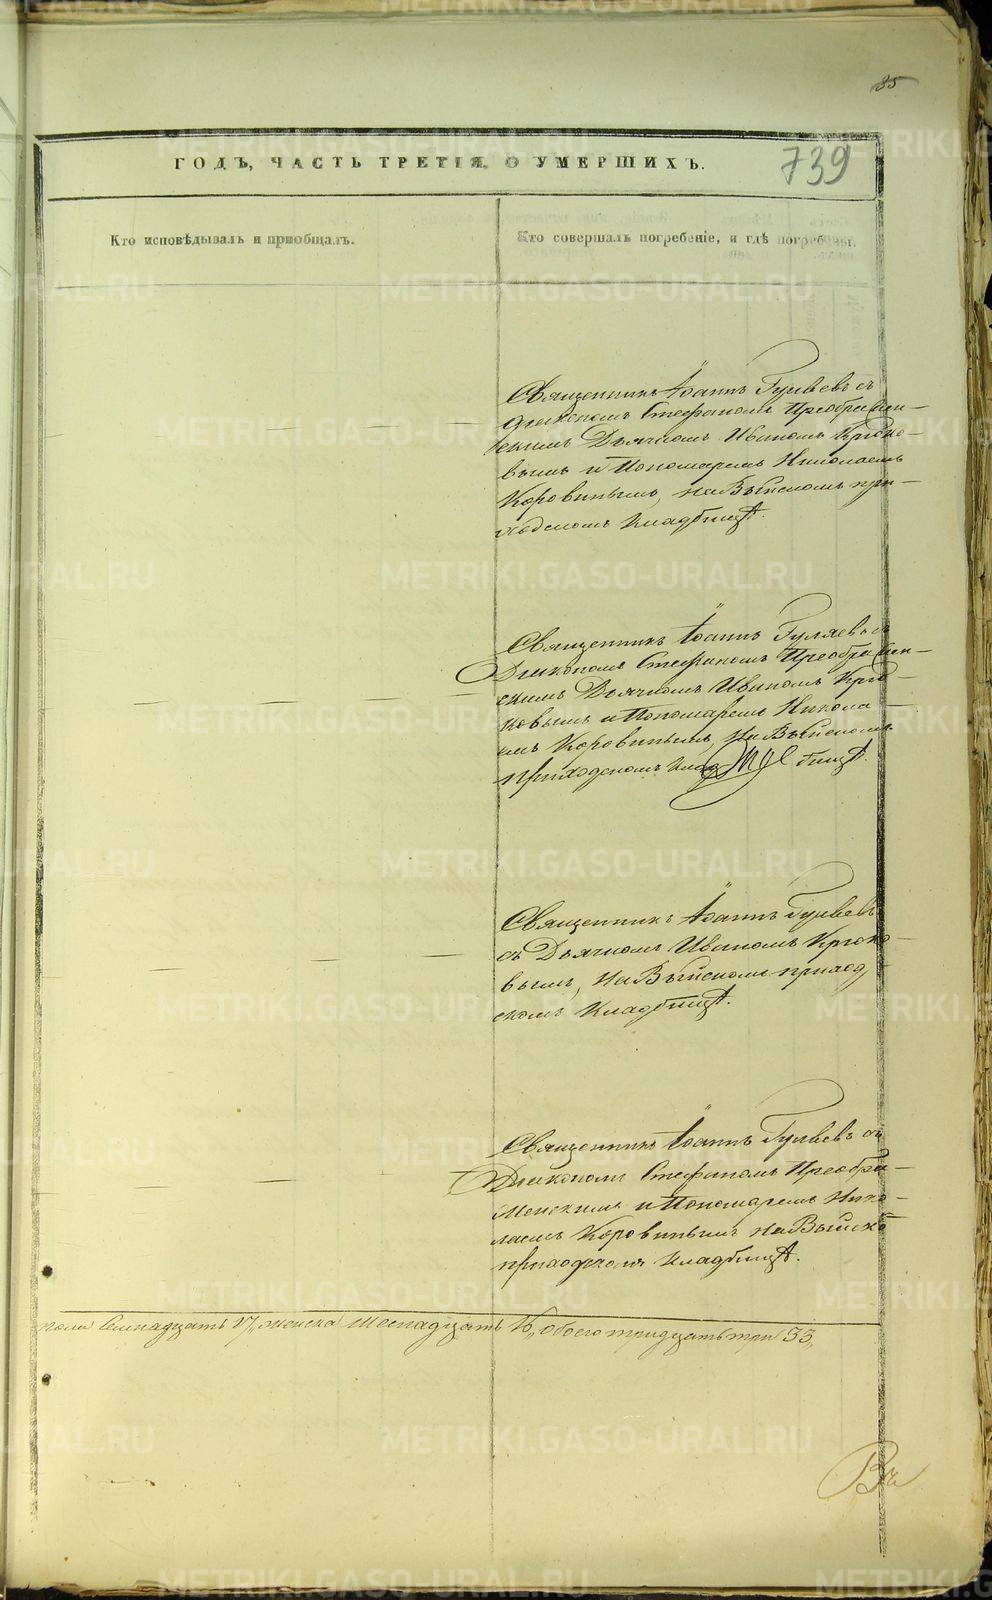 85
ГОДЪ, ЧАСТЬ ТРЕТІЯ, О УМЕРШИХЪ.
739
Кто исповѣдывалъ и пріобщалъ.
Кто совершалъ погребеніе, и гдѣ погребены.
Священникъ Іоаннъ Гуляевъ съ
Діакономъ Стефаномъ Преображен-
скимъ Дьячкомъ Иваномъ Крюко-
вымъ и Пономаремъ Николаемъ
Коровинымъ, на Выйскомъ при-
ходскомъ кладбищѣ.
Священникъ Іоаннъ Гуляевъ съ
Діакономъ Стефаномъ Преображен-
скимъ Дьячкомъ Иваномъ Крю-
ковымъ и Пономаремъ Никола-
емъ Коровинымъ, на Выйскомъ
приходскомъ клад бищѣ.
Священникъ Іоаннъ Гуляевъ
съ Дьячкомъ Иваномъ Крюко-
вымъ, на Выйскомъ приход
скомъ кладбищѣ.
Священникъ Іоаннъ Гуляевъ съ
Діакономъ Стефаномъ Преобра-
женскимъ и Пономаремъ Нико-
лаемъ Коровинымъ на Выйско
приходскомъ кладбищѣ.
пола Семнадцать 17, женска Шестнадцать 16, обоего тридцать три 33,
Въ
METRIKI.GASO-URAL.RU